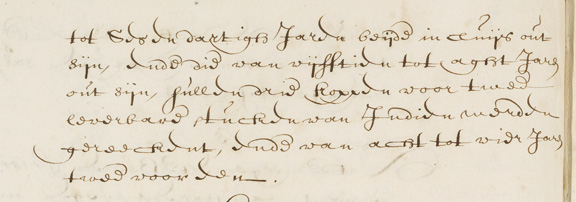 tot Ses en dartigh Jaren beijde in cluijs out
sijn, ende die van vijfftien tot aght Jaren
out sijn, sullen drie koppen voor twee
leverbare stucken van Indien werden
gereeckent, ende van acht tot vier Jaren
twee voor een.